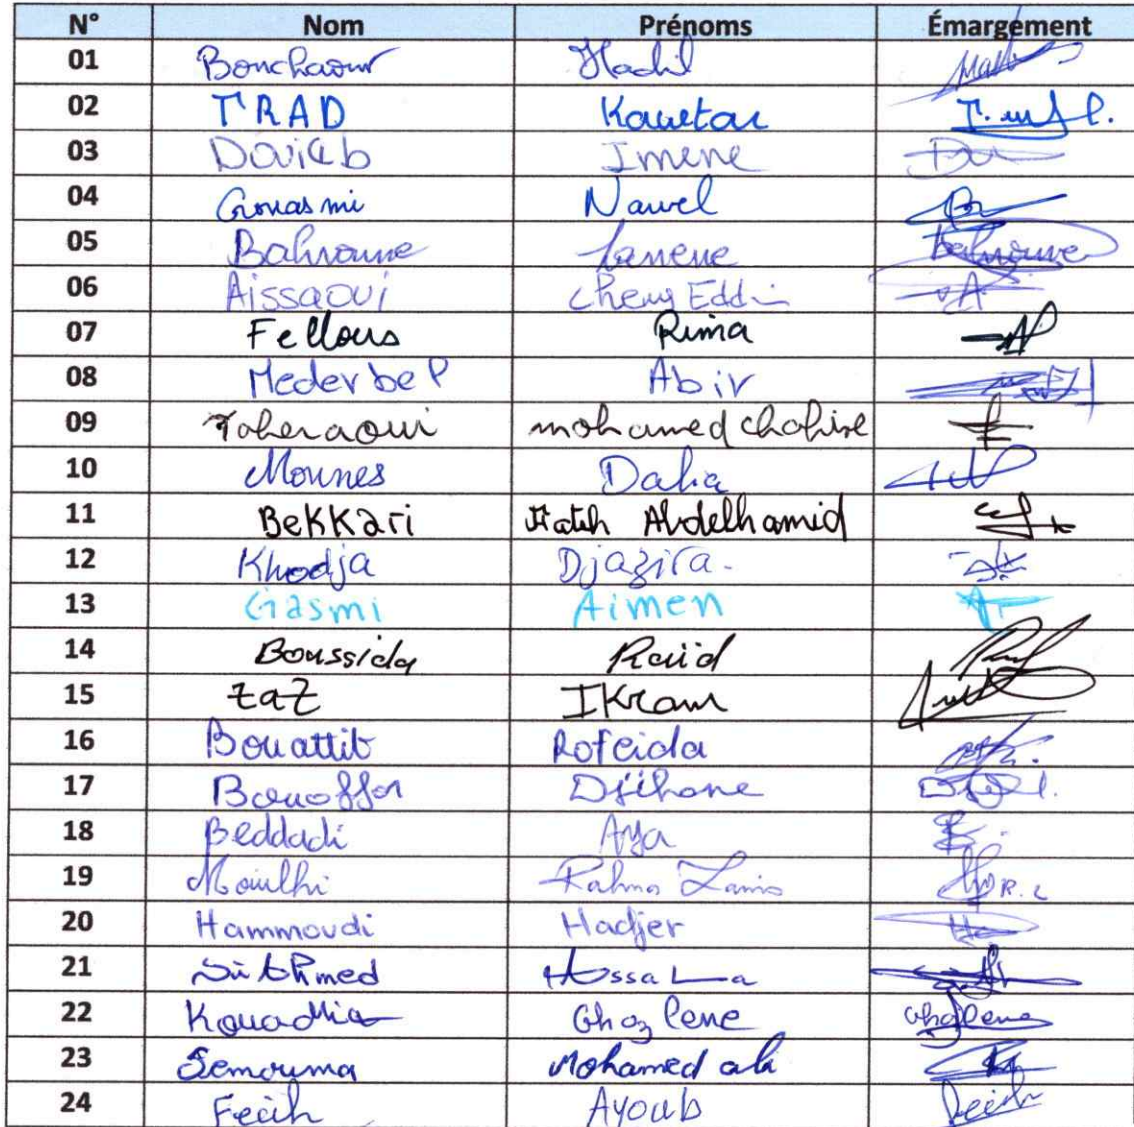 N° Nom Prénoms Émargement
01 Bouchaour Hadil
02 TRAD Kawetar T.
03 Douieb Imene
04 Gouasmi Nawel
05 Bahroune Lamene Bahroune
06 Aissaoui Cherif Eddin A
07 Fellous Rima
08 Mederbel Abir
09 Taheraoui mohamed chahine
10 Mounes Dalia
11 BeKKari Fateh Abdelhamid
12 Khodja Djazira.
13 Gasmi Aimen
14 Boussida Raïd
15 ZaZ IKram
16 Bouattit Rofeida
17 Bouoffor Djihane
18 Beddadi Aya
19 Mouilhi Rahma Lamis R.L
20 Hammoudi Hadjer Ha
21 Si Ahmed
22 Kouadria Ghozlene Ghozlene
23 Semouma Mohamed ali
24 Fecih Ayoub Fecih